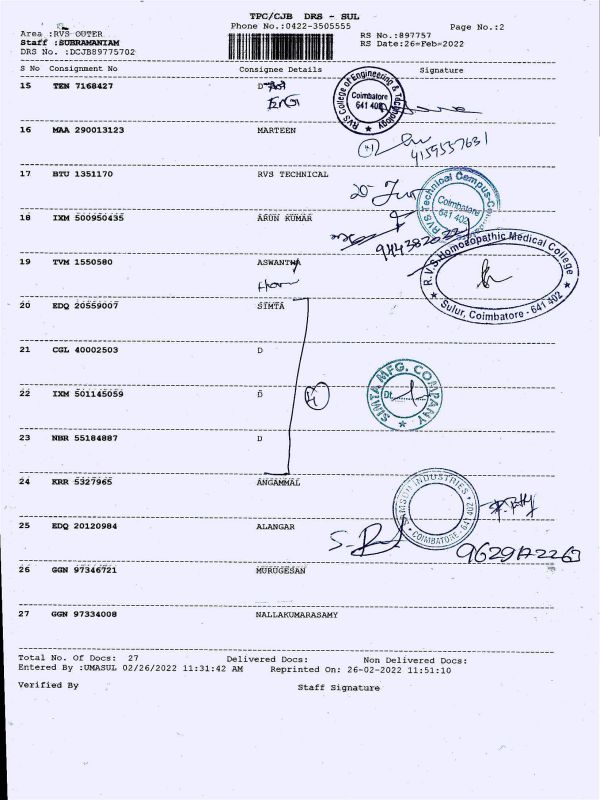 TPC/CJB DRS - SUL
Phone No.:0422-3505555
Page No.:2
Area :RVS OUTER
Staff :SUBRAMANIAM
DRS No. :DCJB89775702
RS No.:897757
RS Date:26-Feb-2022
S No Consignment No Consignee Details Signature
15 TEN 7168427 D
RVS College of Engineering & Technology
Coimbatore
641 402
16 MAA 290013123 MARTEEN
17 BTU 1351170 RVS TECHNICAL
RVS Technical Campus-Co
Coimbatore
641 402
18 IXM 500950435 ARUN KUMAR
19 TVM 1550580 ASWANTH
R.V.S. Homoeopathic Medical College
Sulur, Coimbatore - 641 402
20 EDQ 20559007 SIMTA
21 CGL 40002503 D
22 IXM 501145059 D
4
SIMTA MFG. COMPANY
Dt.
23 NBR 55184887 D
24 KRR 5327965 ANGAMMAL
INDUSTRIES
COIMBATORE 641 402
25 EDQ 20120984 ALANGAR
26 GGN 97346721 MURUGESAN
27 GGN 97334008 NALLAKUMARASAMY
Total No. Of Docs: 27 Delivered Docs: Non Delivered Docs:
Entered By :UMASUL 02/26/2022 11:31:42 AM Reprinted On: 26-02-2022 11:51:10
Verified By Staff Signature